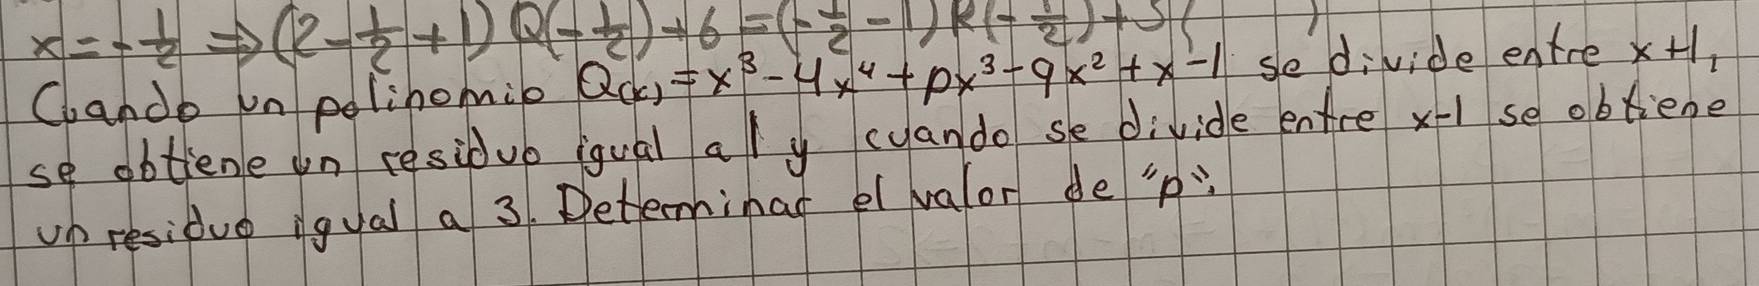 x = -1/2 ⇒ (2 - 1/2 + 1) Q(-1/2) + 6 = (-1/2 - 1) R(-1/2) + 5( )
Cuando un polinomio Q(x) = x³ - 4x⁴ + px³ - 9x² + x - 1 se divide entre x+1,
se obtiene un residuo igual a 1 y cuando se divide entre x-1 se obtiene
un residuo igual a 3. Determinar el valor de "p".